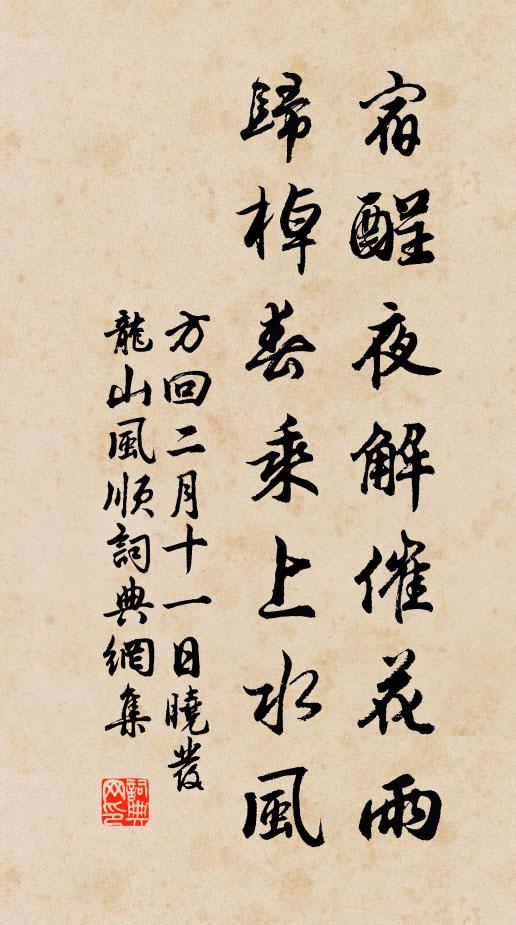 宿醒夜解催花雨
歸棹春乘上水風
方回二月十一日曉發
龍山風順詞典網集
詞典网印